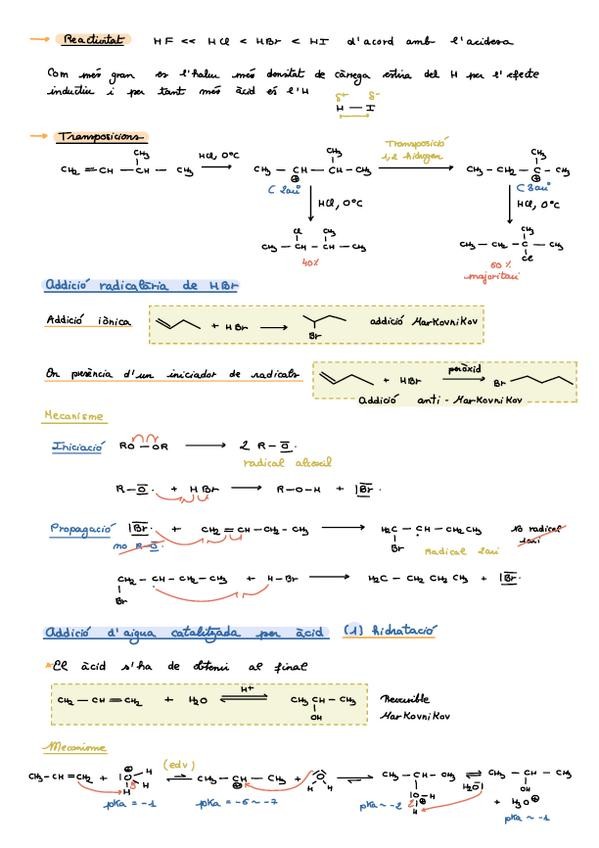 → Reactivitat HF << HCl < HBr < HI d'acord amb l'acidesa
Com més gran es l'halur més densitat de càrrega estira del H per l'efecte
inductiu i per tant més àcid es l'H
δ+ δ-
H — I
→ Transposicions
CH3 CH3 CH3
CH2 = CH — CH — CH3 HCl, 0°C CH3 — CH — CH — CH3 Transposició 1,2 hidrogen CH3 — CH2 — C — CH3
⊕ ⊕
C 2ari C 3ari
HCl, 0°C HCl, 0°C
Cl CH3 CH3
CH3 — CH — CH — CH3 CH3 — CH2 — C — CH3
Cl
40% 60%
majoritari
Addició radicalària de HBr
Addició iònica + HBr → Br addició Markovnikov
En presència d'un iniciador de radicals + HBr peròxid Br
Addició anti - Markovnikov
Mecanisme
Iniciació RO — OR → 2 R — O·
radical alcoxil
R — O· + HBr → R — O — H + |Br·
Propagació |Br· + CH2 = CH — CH2 — CH3 → H2C — CH — CH2CH3
no R — O· Br radical 2ari No radical 1ari
CH2 — CH — CH2 — CH3 + H — Br → H2C — CH2 CH2 CH3 + |Br·
Br
Addició d'aigua catalitzada per àcid (1) hidratació
*El àcid s'ha de obtenir al final
CH3 — CH = CH2 + H2O H+ CH3 — CH — CH3 Reversible
OH Markovnikov
Mecanisme
(edv)
CH3 — CH = CH2 + H O H H ⊕ ⇌ CH3 — CH — CH3 + H O H ⇌ CH3 — CH — CH3 ⇌ CH3 — CH — CH3
⊕ O — H ⊕ H H2O OH
+ H3O⊕
pKa = -1 pKa = -6 ~ -7 pKa ~ -2 pKa ~ -1